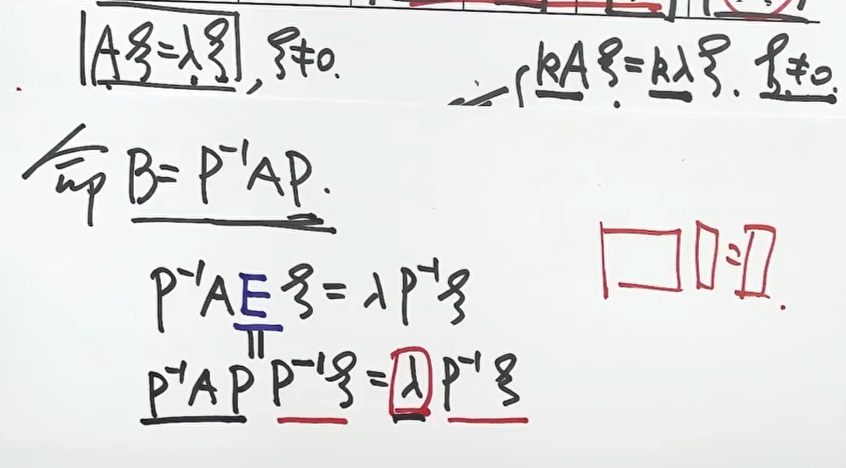 Aξ=λξ, ξ≠0.
kAξ=kλξ. ξ≠0.
B=P⁻¹AP.
P⁻¹AEξ=λP⁻¹ξ
=
P⁻¹AP P⁻¹ξ=λP⁻¹ξ